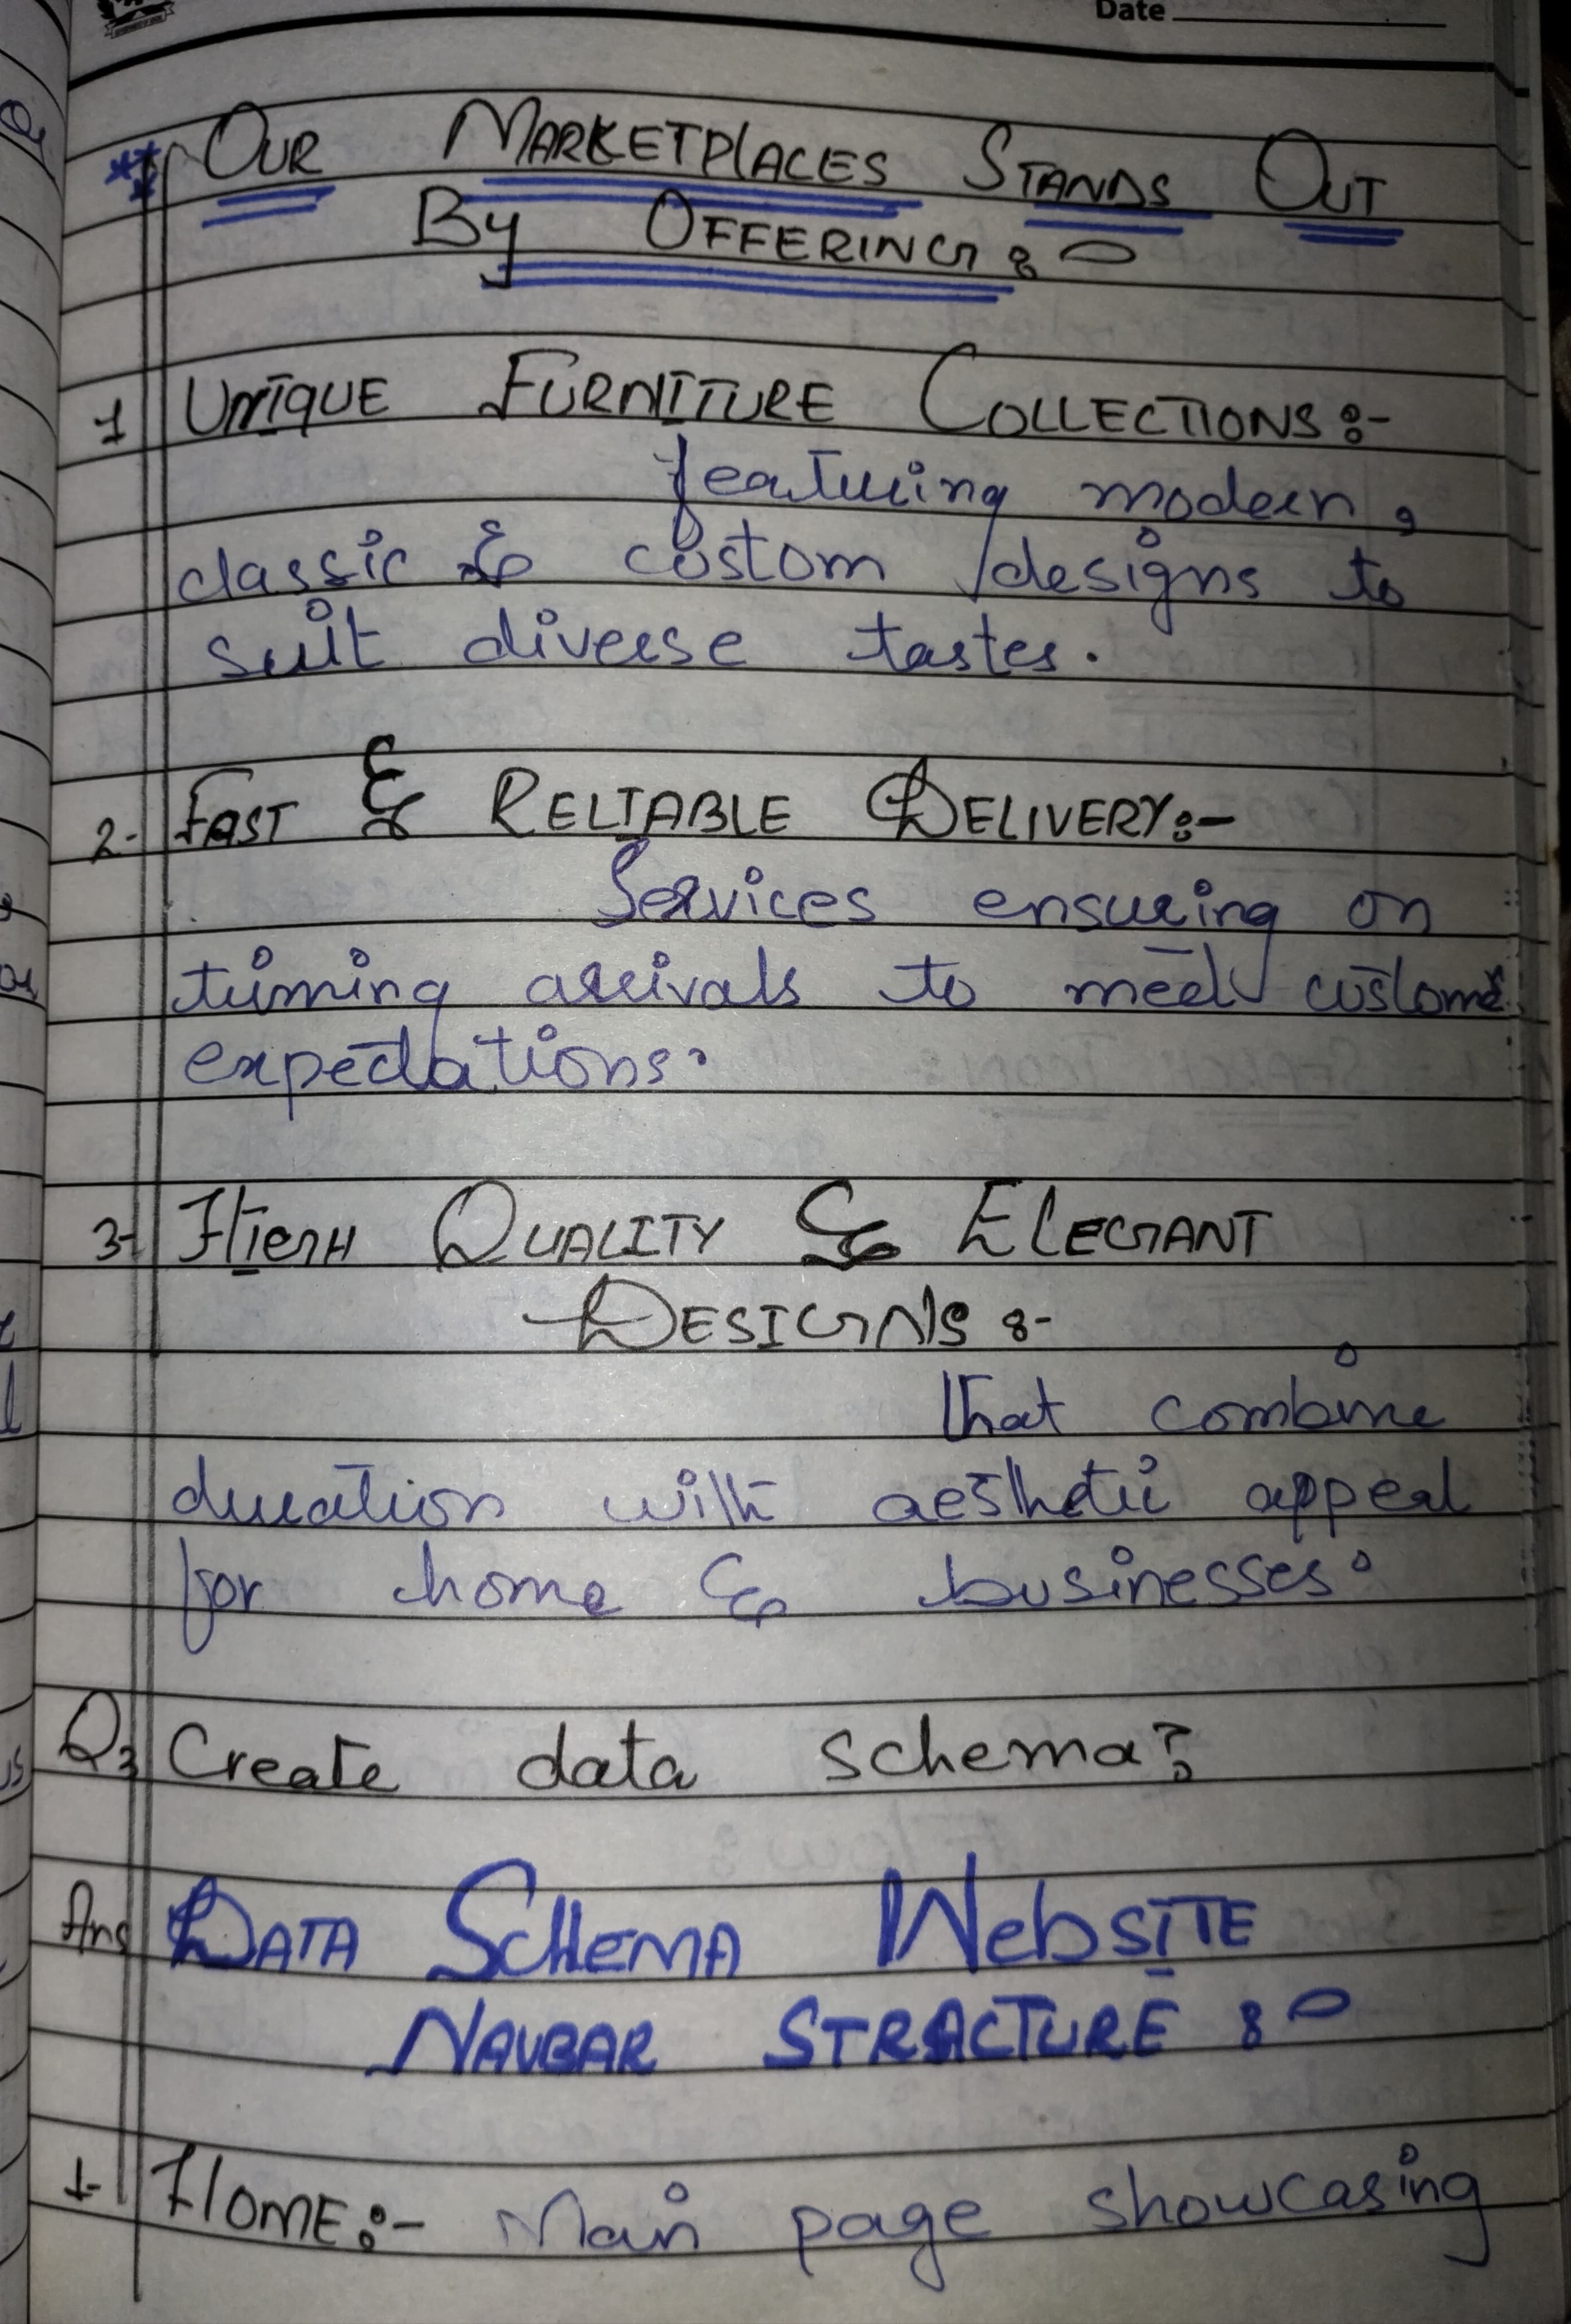 Date
** OUR MARKETPLACES STANDS OUT
By OFFERING :-
1 UNIQUE FURNITURE COLLECTIONS:-
featuring modern,
classic & custom designs to
suit diverse tastes.
2- FAST & RELIABLE DELIVERY:-
Services ensuring on
timing arrivals to meet customer
expectations.
3- HIGH QUALITY & ELEGANT
DESIGNS :-
that combine
duration with aesthetic appeal
for home & businesses.
Q3 Create data schema?
Ans DATA SCHEMA WebSITE
NAVBAR STRACTURE :-
1- HOME:- Main page showcasing